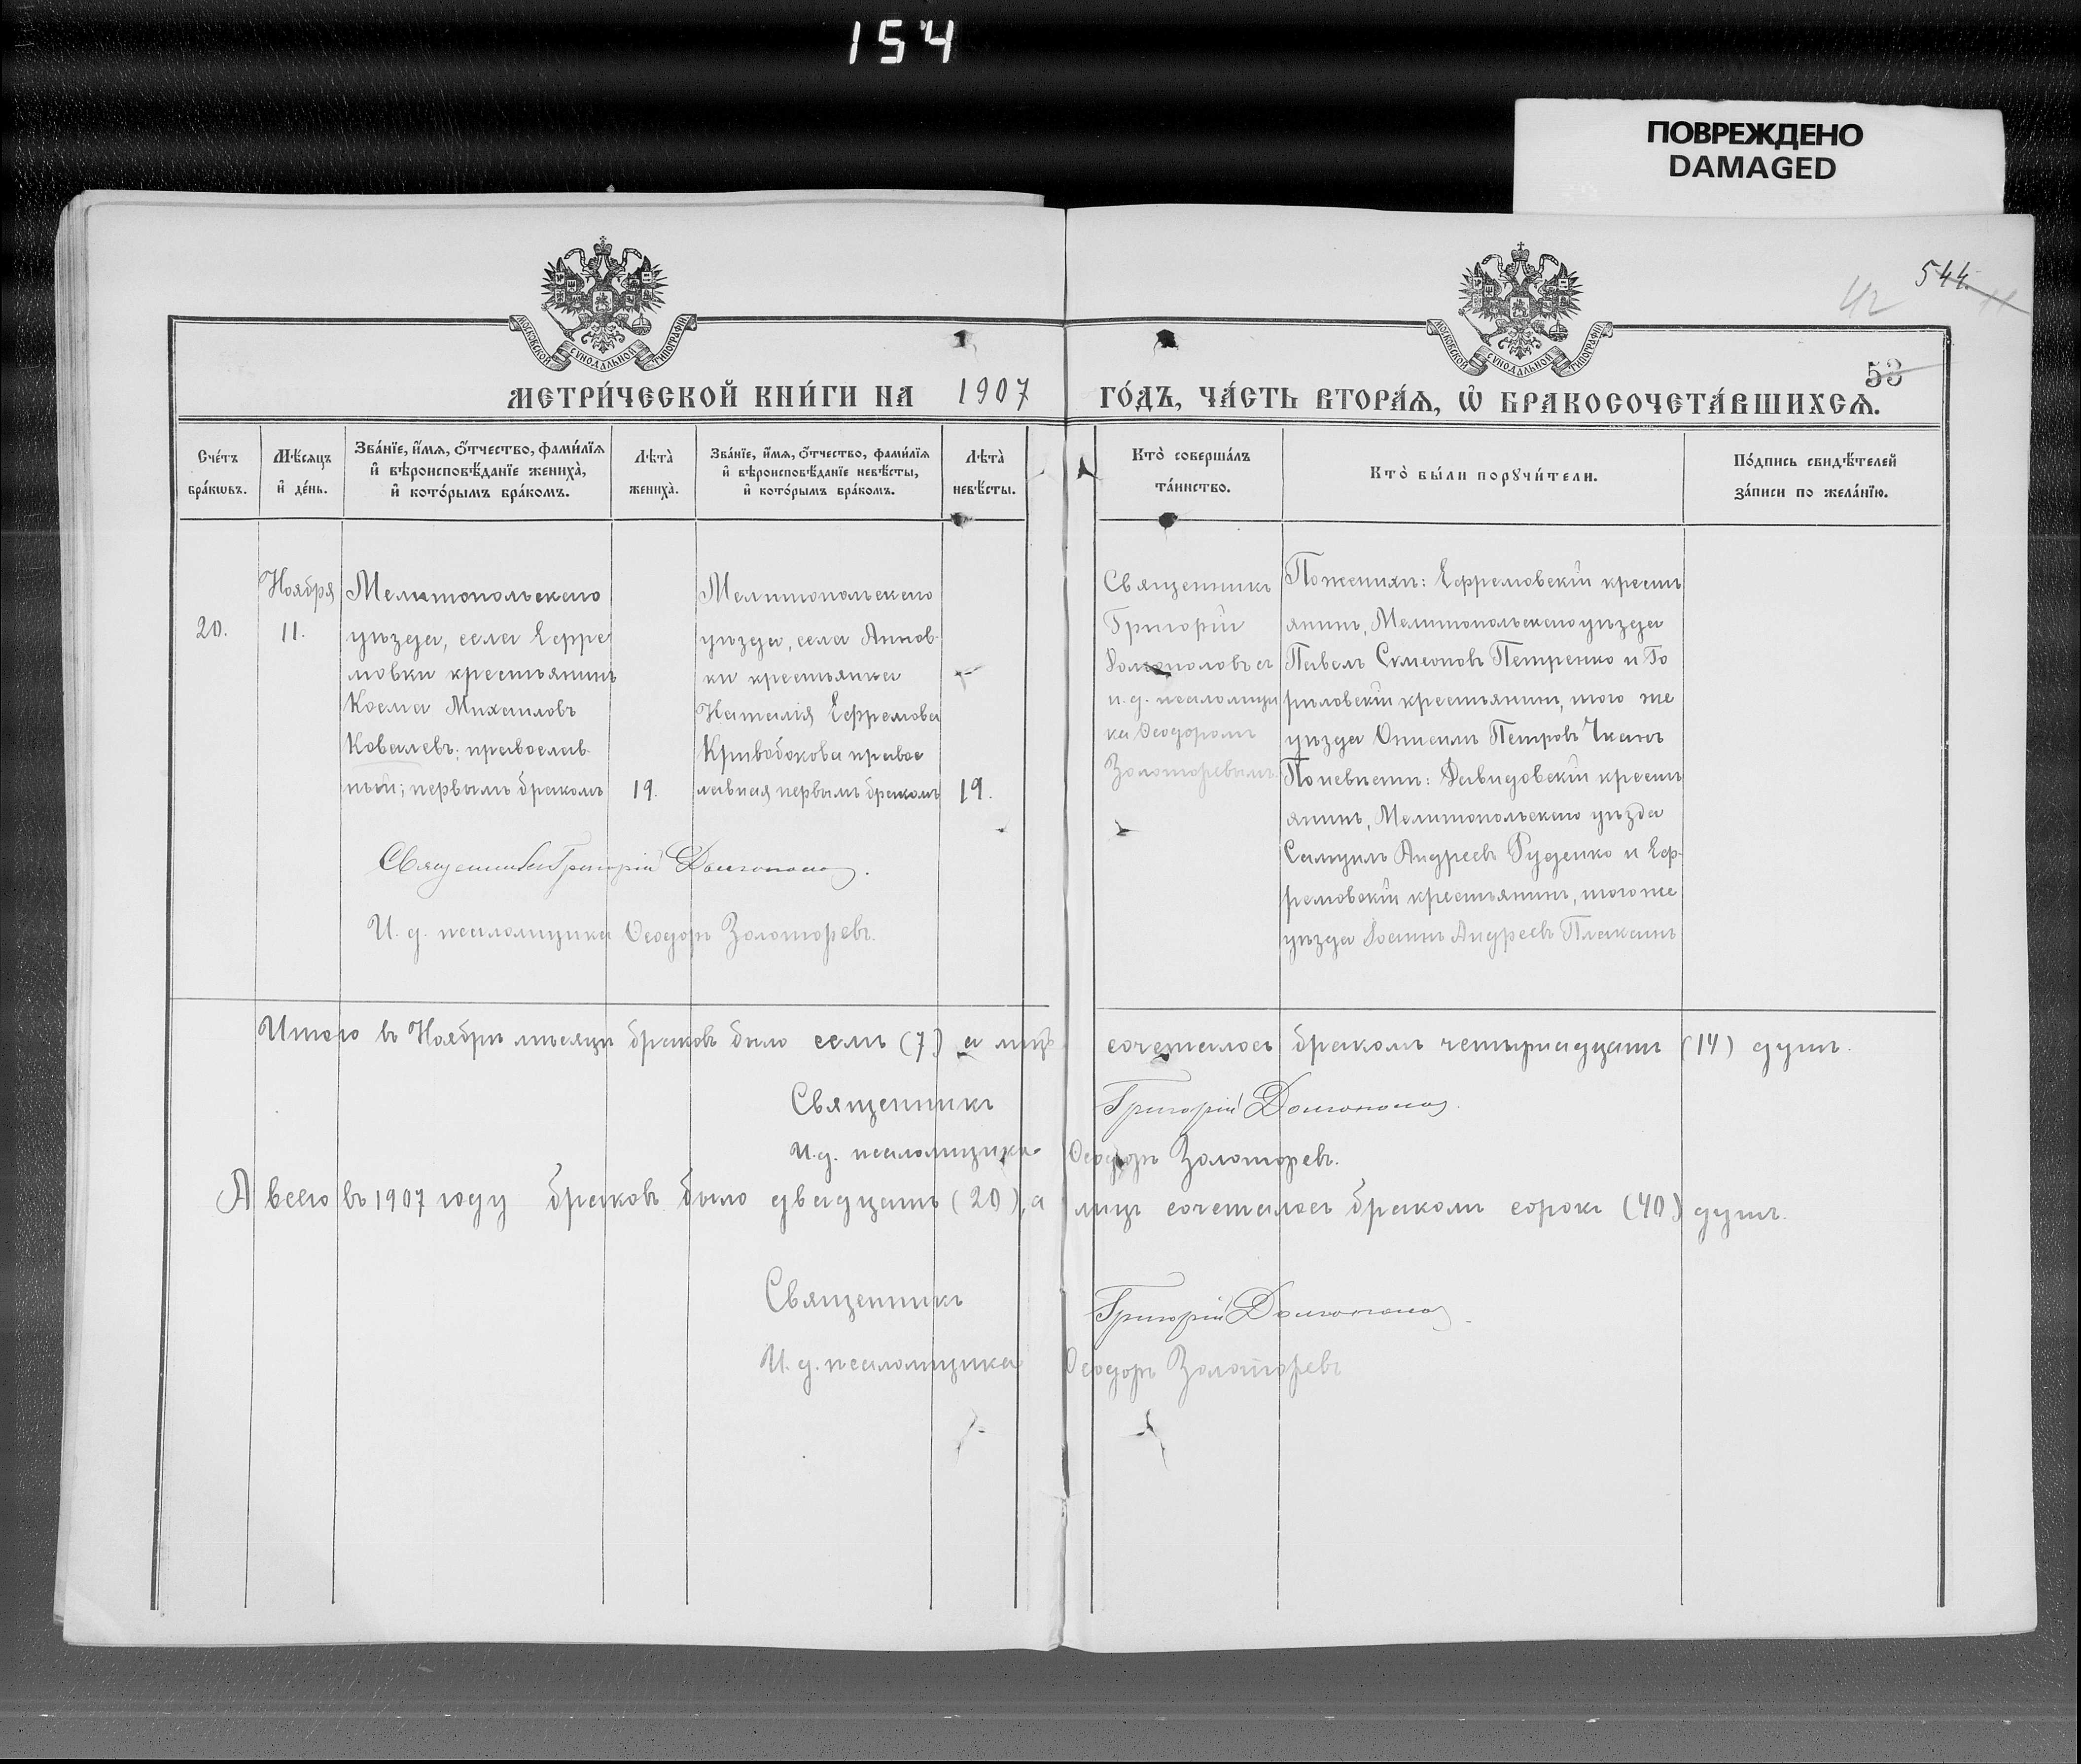 154
ПОВРЕЖДЕНО
DAMAGED
544.
42
53
МОСКОВСКОЙ СѴНОДАЛЬНОЙ ТИПОГРАФІИ
МОСКОВСКОЙ СѴНОДАЛЬНОЙ ТИПОГРАФІИ
МЕТРИ́ЧЕСКОЙ КНИ́ГИ НА 1907 ГО́ДЪ, ЧА́СТЬ ВТОРА́Ѧ, Ѡ҆ БРАКОСОЧЕТА́ВШИХСѦ.
Сче́тъ
бра́кѡвъ.
Мѣ́сяцъ
и҆ де́нь.
Зва́нїе, и҆́мя, ѻ҆́тчество, фами́лїя
и҆ вѣроисповѣ́данїе жениха̀,
и҆ кото́рымъ бра́комъ.
Лѣта̀
жениха̀.
Зва́нїе, и҆́мя, ѻ҆́тчество, фами́лїя
и҆ вѣроисповѣ́данїе невѣ́сты,
и҆ кото́рымъ бра́комъ.
Лѣта̀
невѣ́сты.
Кто̀ соверша́лъ
та́инство.
Кто̀ бы́ли порꙋчи́тели.
По́дпись свидѣ́телей
за́писи по жела́нїю.
20.
Ноября
11.
Мелитопольскаго
уѣзда, села Ефре
мовки крестьянинъ
Косма Михаиловъ
Ковалевъ; православ-
ный; первымъ бракомъ
19.
Мелитопольскаго
уѣзда, села Аннов-
ки крестьянка
Наталія Ефремова
Кривобокова право
славная первымъ бракомъ
19.
Священникъ
Григорій
Долгополовъ съ
и. д. псаломщи
ка Ѳеодоромъ
Золоторевымъ.
По женихѣ: Ефремовскій кресть
янинъ, Мелитопольскаго уѣзда
Павелъ Симеоновъ Петренко и Го
рѣловскій крестьянинъ, того же
уѣзда Онисимъ Петровъ Чканъ
По невѣстѣ: Давидовскій кресть
янинъ, Мелитопольскаго уѣзда
Самуилъ Андреевъ Руденко и Еф-
ремовскій крестьянинъ, того же
уѣзда Іоаннъ Андреевъ Плаканъ
Священникъ Григорій Долгополов.
И. д. псаломщика Ѳеодоръ Золоторевъ.
Итого въ Ноябрѣ мѣсяцѣ браковъ было семь (7) а лицъ сочеталось бракомъ четырнадцать (14) душъ.
Священникъ Григорій Долгополов.
И. д. псаломщика Ѳеодоръ Золоторевъ.
А всего въ 1907 году браковъ было двадцать (20), а лицъ сочеталось бракомъ сорокъ (40) душъ.
Священникъ Григорій Долгополов.
И. д. псаломщика Ѳеодоръ Золоторевъ